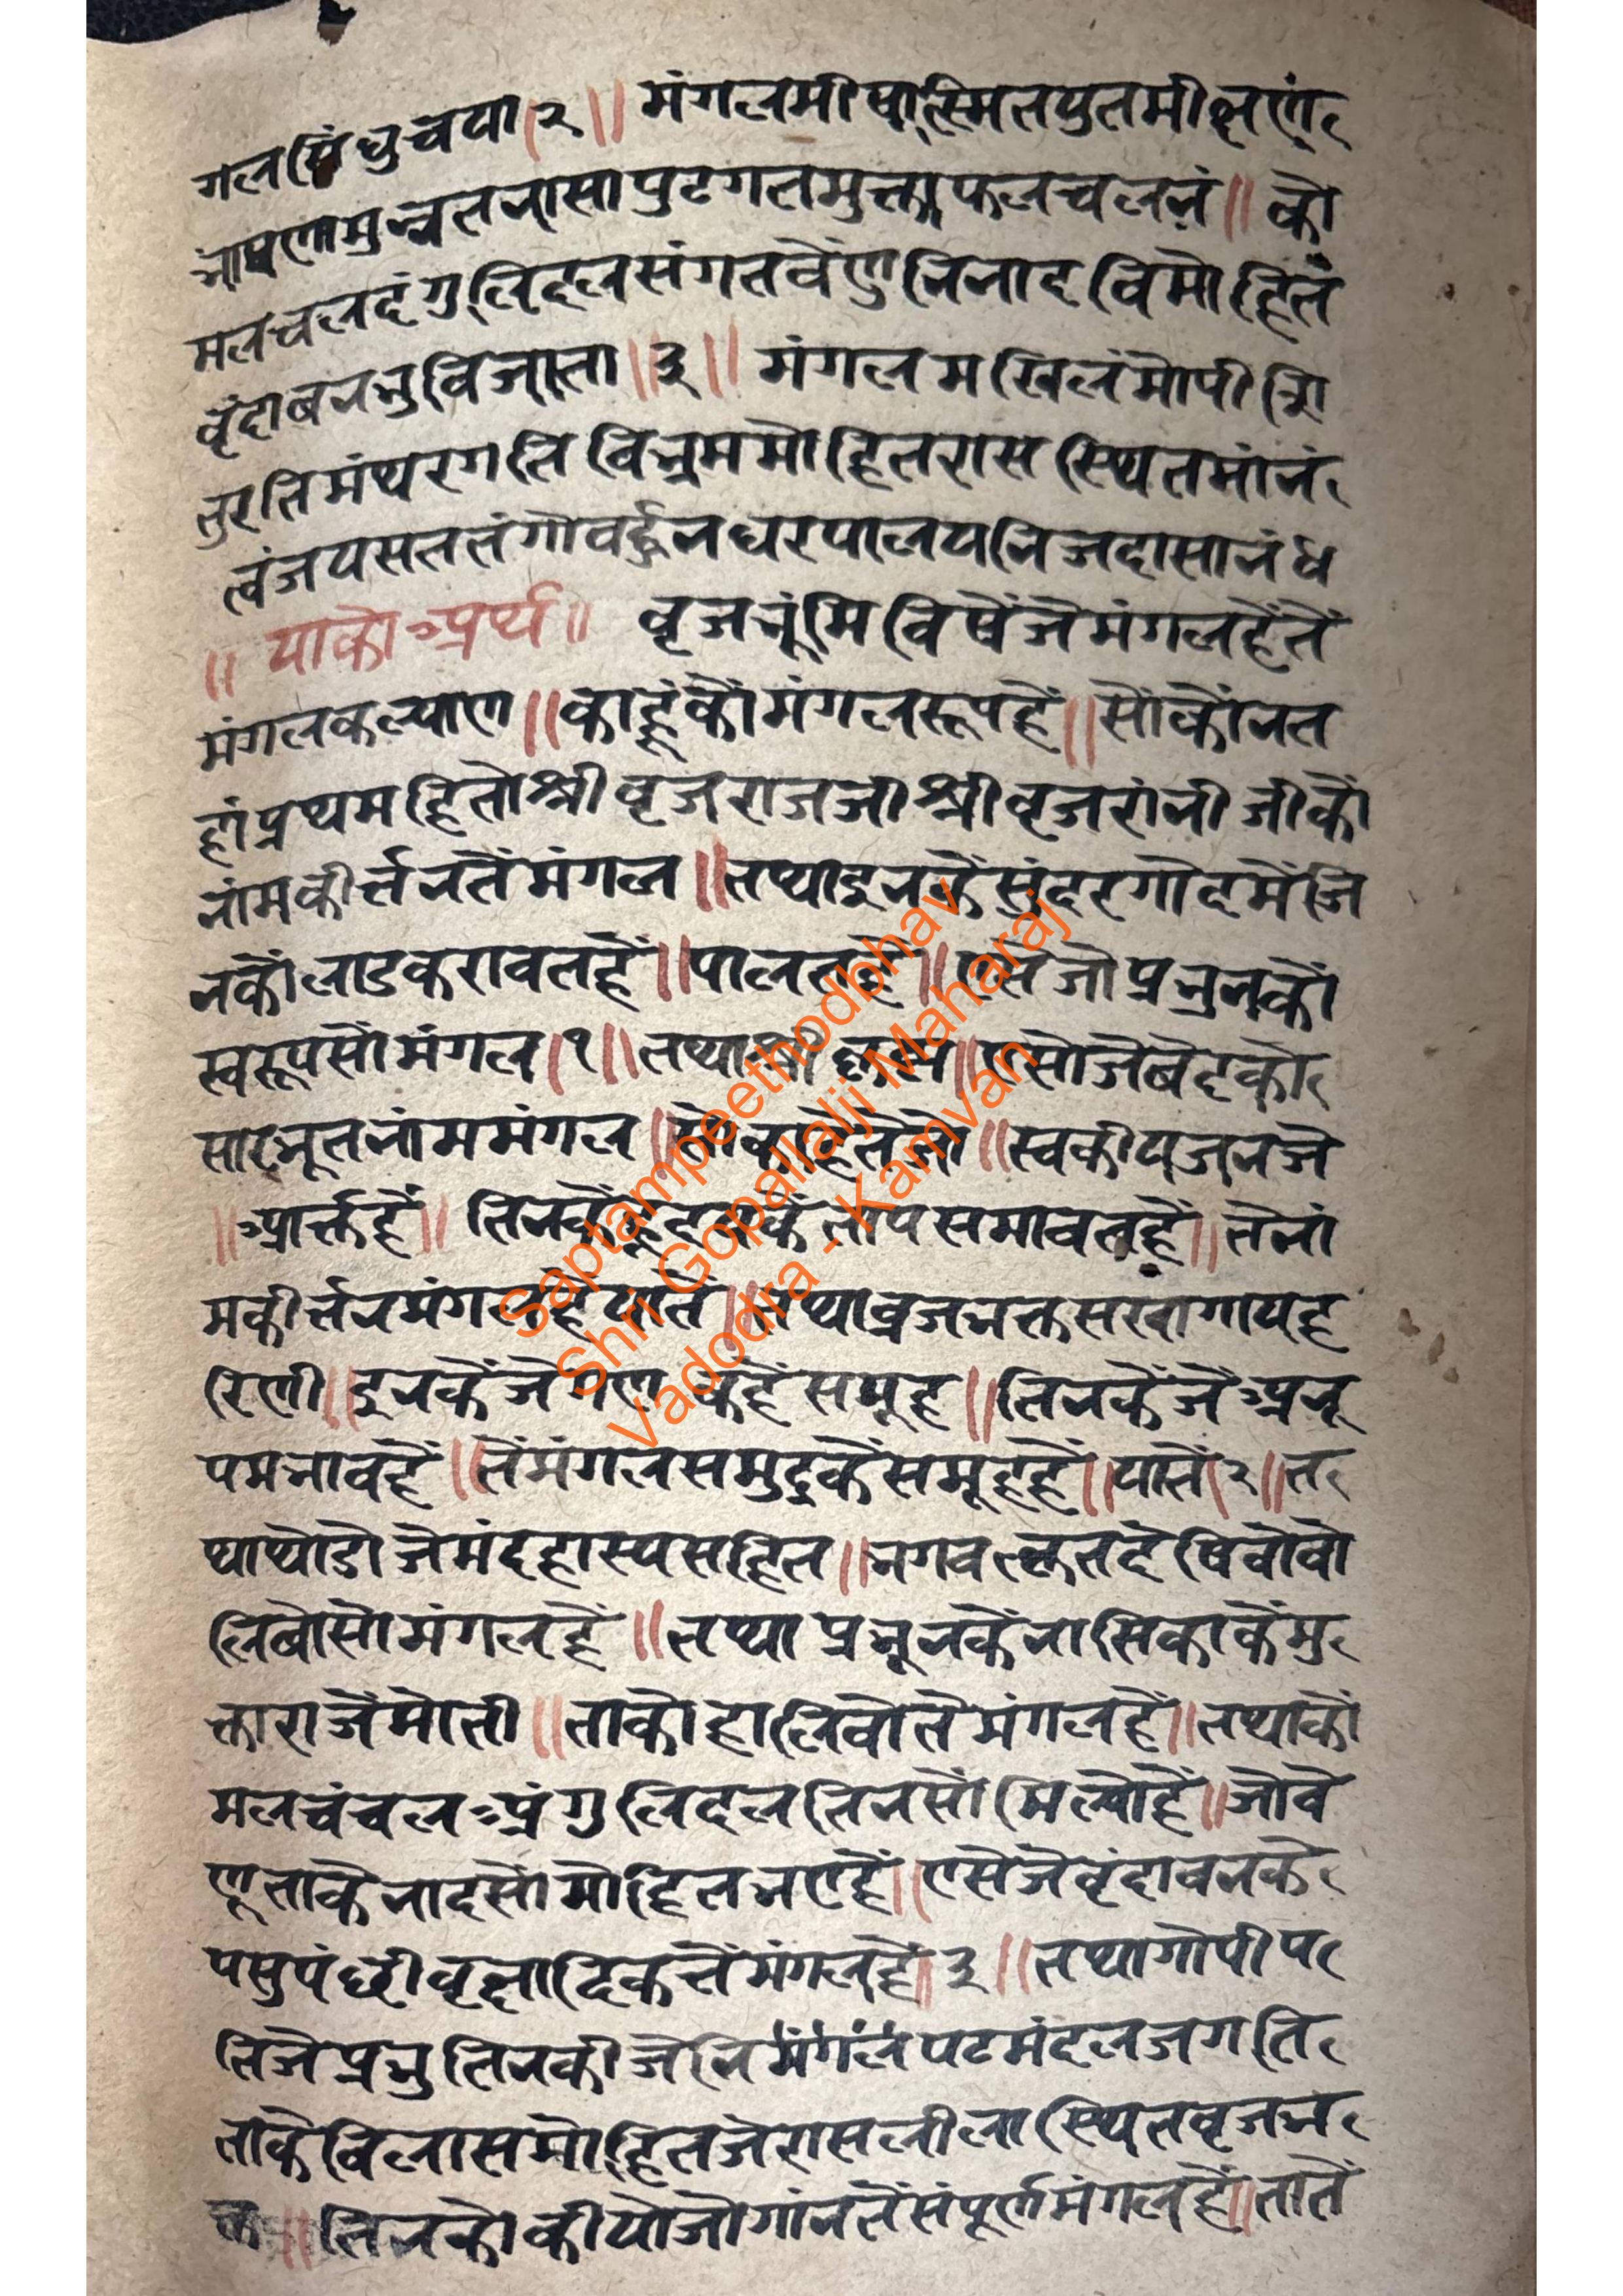 गलसिंधुचया।२॥ मंगलमीषत्स्मितयुतमीक्षण
भाषणमुन्नतनासापुटगतमुक्ताफलचलनं॥ को
मलचलदंगुलिदलसंगतवेणुनिनादविमोहित
वृंदाबनभुविजाता॥३॥ मंगलमखिलंगोपीशि
तुरतिमंथरगतिविभ्रममोहितरासस्थितमांनं
त्वंजयसततंगोवर्द्धनधरपालयनिजदासानं४
॥ याकोअर्थ॥ वृजभूंमिविषैंजेमंगलहैंतें
मंगलकल्याण॥काहूंकौंमंगलरूपहें॥सोंकोंनत
हांप्रथमहितोश्रीवृजराजजीश्रीवृजरांनीजीकौं
नांमकीर्त्तनतेंमंगल॥तथाइनकेंसुंदरगोदमेंजि
नकौंलाडकरावतहें॥पालतहे॥एसेजोप्रभुनकौं
स्वरूपसोंमंगल।१॥तथाश्रीकृष्ण॥एसोजेबेदको
सारभूतनांममंगल॥सोकाहेतेजो॥स्वकीयजनजे
॥आर्त्तहें॥ तिनकेंहृदयकेंतापसमावतहें॥तेनां
मकीर्त्तनमंगलहेंयातें॥तथाव्रजभक्तसखागायह
रिणी॥इनकेंजेगणकहेंसमूह॥तिनकेंजेंअनू
पमभावहें॥तेंमंगलसमुद्रकेंसमूहहें॥यातें।२॥त
थाथोडोजेमंदहास्यसहित॥भगवत्कृतदेषिवोवो
लिबोसोमंगलहें॥तथाप्रभूनकेंनासिकाकेंमु
क्ताराजेंमोती॥ताकोहालिवोतेमंगलहें॥तथाकों
मलचंचलअंगुलिदलतिनसोंमिल्योहें॥जोवे
णूताकेनादसोंमोहितभएहें॥एसेजेवृंदावनके
पसुपंछीवृक्षादिकतेंमंगलहें॥३॥तथागोपीप
तिजेप्रभुतिनकीजेनिमंगलपटमंदलजगति
ताकेविलासमोहितजेरासलीलास्थितवृजभ
क्त॥तिनकोकीयोजोगांनतेंसंपूर्णमंगलहें॥तातें
Saptampeethodbhav
Shri Gopallalji Maharaj
Vadodra - Kamvan